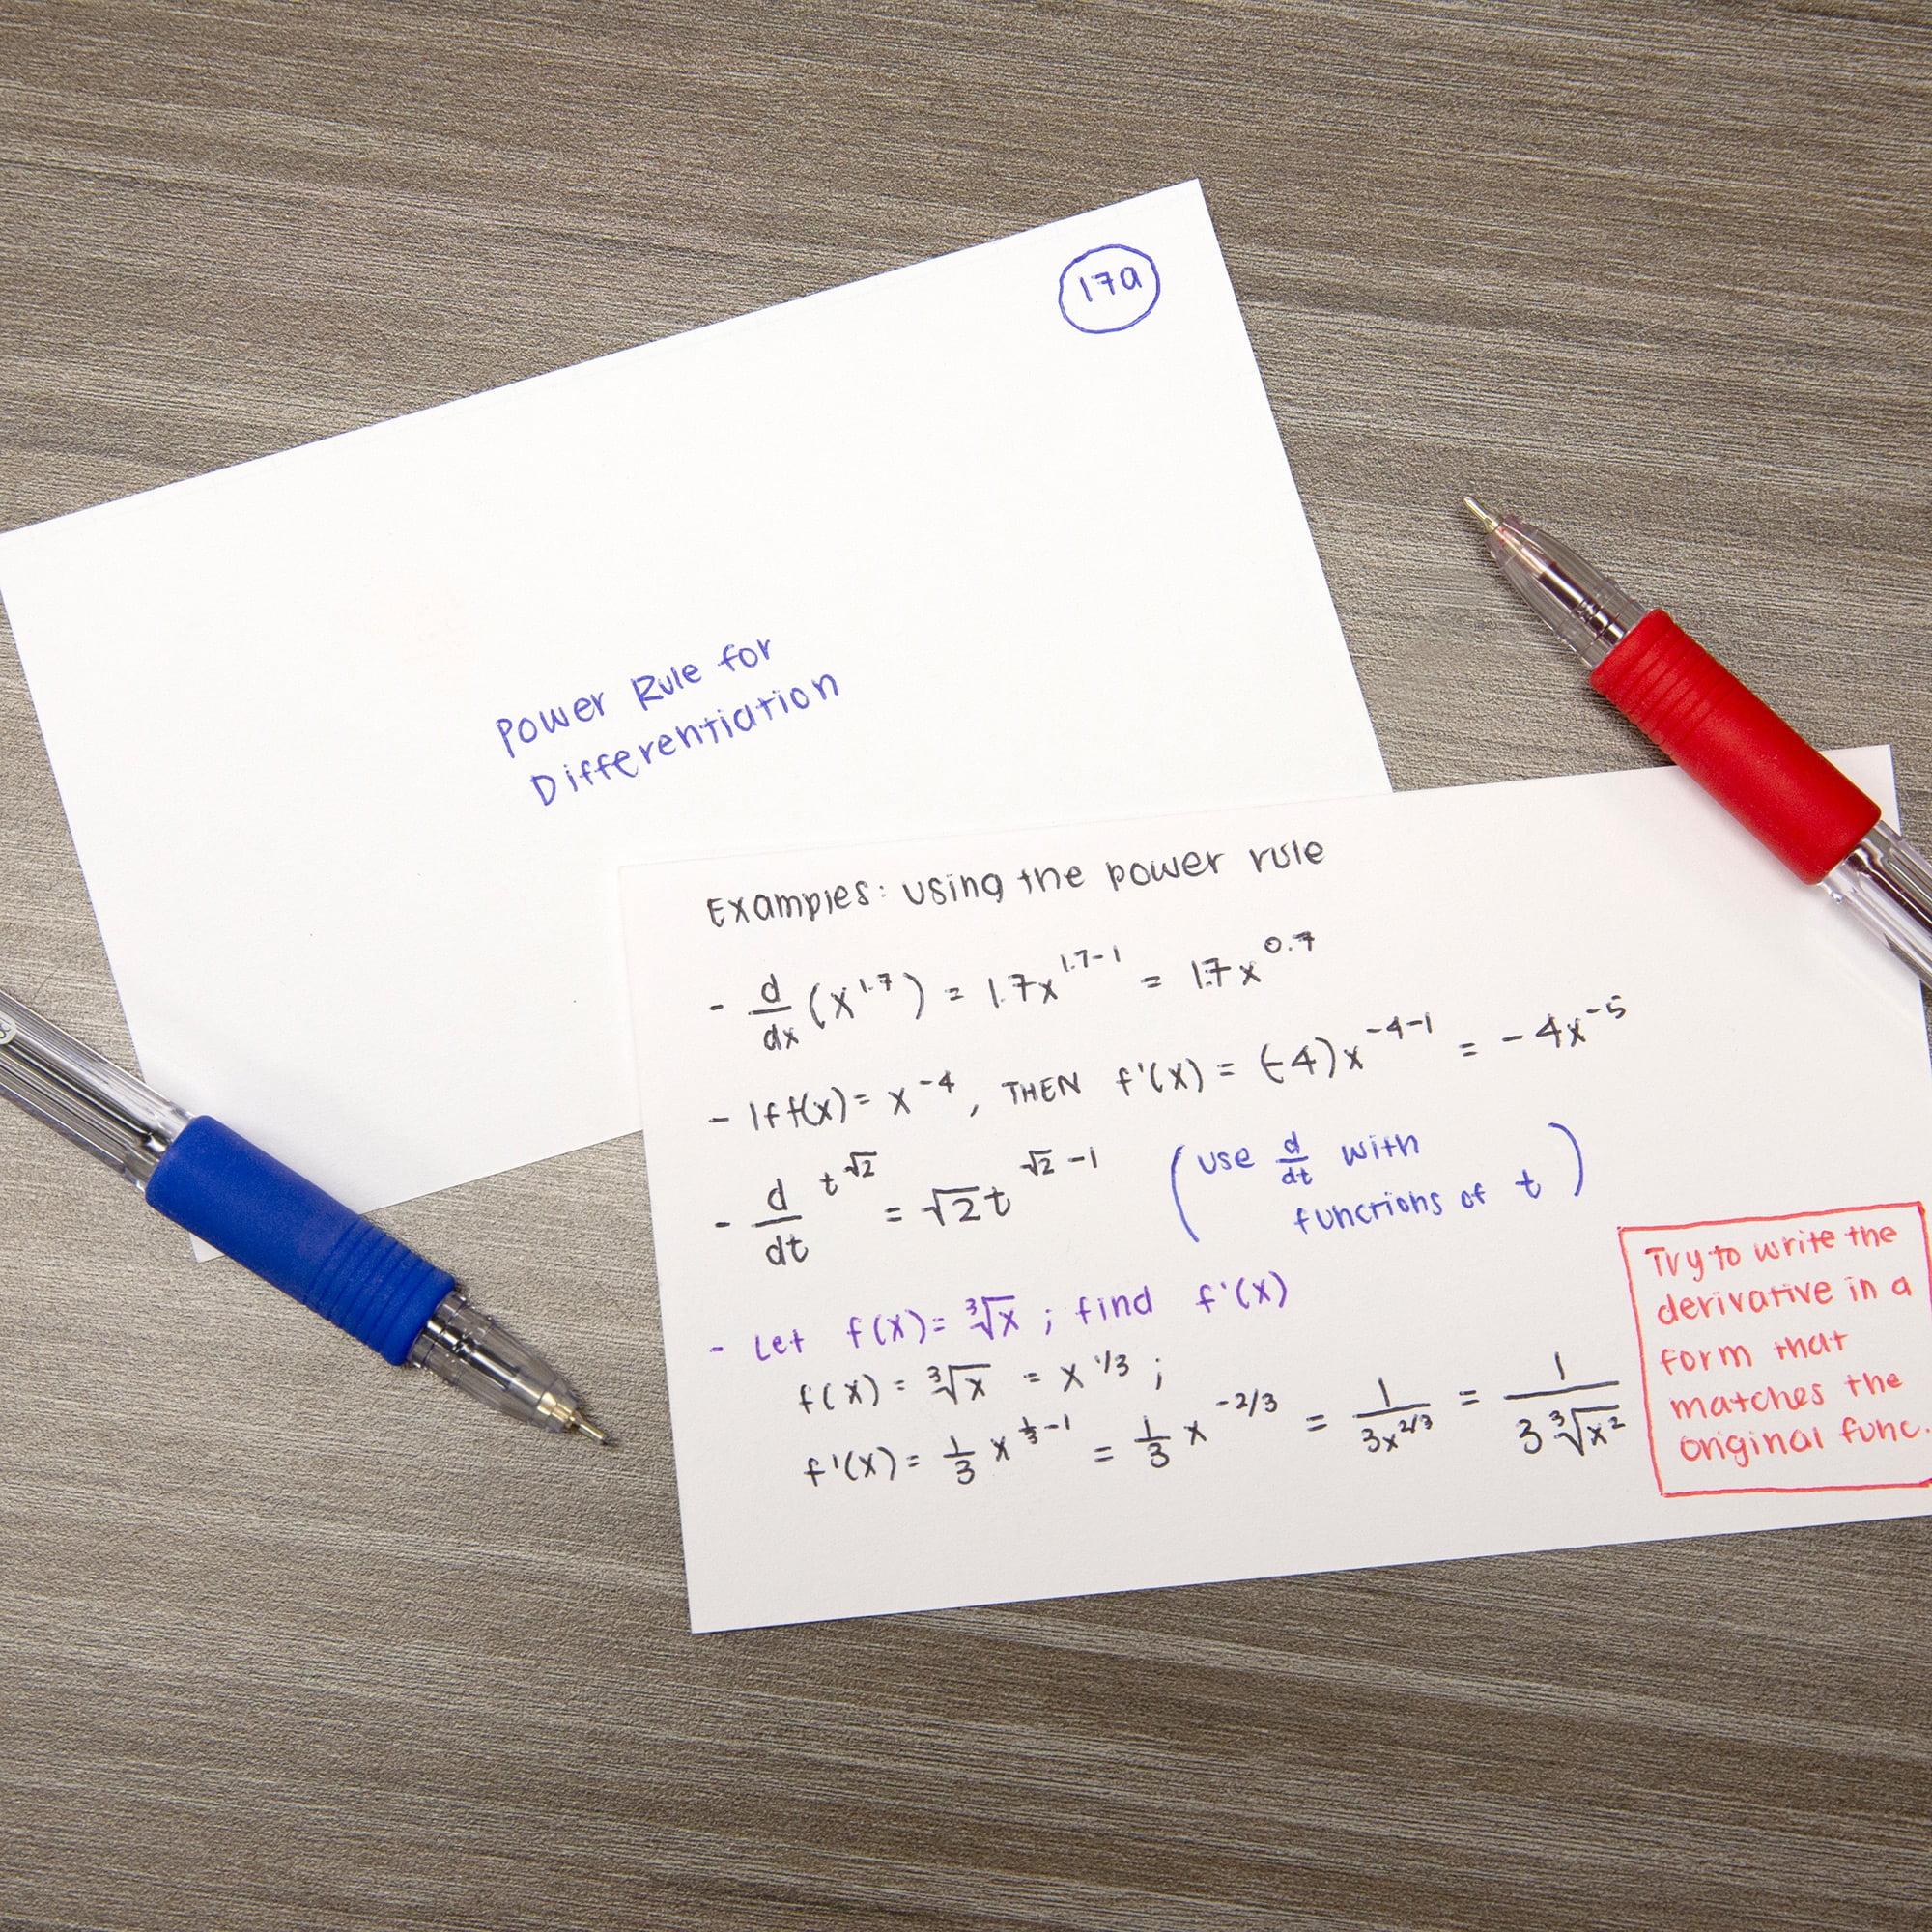 17a
Power Rule for
Differentiation
Examples: using the power rule
- d/dx (x^1.7) = 1.7x^(1.7-1) = 1.7x^0.7
- If f(x) = x^-4, THEN f'(x) = (-4)x^(-4-1) = -4x^-5
- d/dt t^√2 = √2 t^(√2-1) (use d/dt with
functions of t)
- Let f(x) = ∛x ; find f'(x)
f(x) = ∛x = x^1/3 ;
f'(x) = 1/3 x^(1/3-1) = 1/3 x^-2/3 = 1/(3x^2/3) = 1/(3∛x²)
Try to write the
derivative in a
form that
matches the
original func.